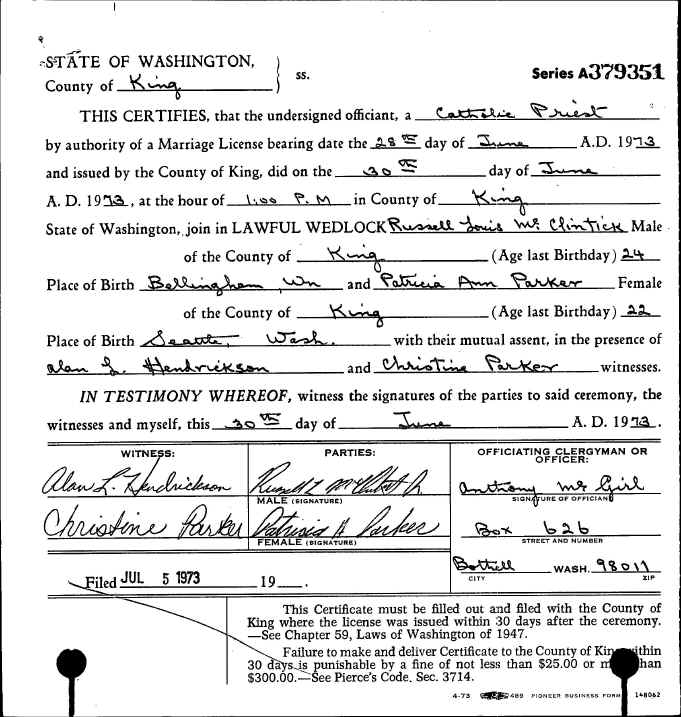 STATE OF WASHINGTON,
County of King ss.
Series A379351
THIS CERTIFIES, that the undersigned officiant, a Catholic Priest
by authority of a Marriage License bearing date the 28th day of June A.D. 1973
and issued by the County of King, did on the 30th day of June
A. D. 1973, at the hour of 1:00 P.M in County of King
State of Washington, join in LAWFUL WEDLOCK Russell Louis McClintick Male
of the County of King (Age last Birthday) 24
Place of Birth Bellingham, Wn and Patricia Ann Parker Female
of the County of King (Age last Birthday) 22
Place of Birth Seattle, Wash. with their mutual assent, in the presence of
Alan L. Hendrickson and Christine Parker witnesses.
IN TESTIMONY WHEREOF, witness the signatures of the parties to said ceremony, the
witnesses and myself, this 30th day of June A. D. 1973.
WITNESS: PARTIES: OFFICIATING CLERGYMAN OR
OFFICER:
Alan L. Hendrickson Russell L McClintick Jr. Anthony McGirl
MALE (SIGNATURE) SIGNATURE OF OFFICIANT
Christine Parker Patricia A Parker Box 626
FEMALE (SIGNATURE) STREET AND NUMBER
Bothell WASH. 98011
CITY ZIP
Filed JUL 5 1973 19 .
This Certificate must be filled out and filed with the County of
King where the license was issued within 30 days after the ceremony.
—See Chapter 59, Laws of Washington of 1947.
Failure to make and deliver Certificate to the County of King within
30 days is punishable by a fine of not less than $25.00 or more than
$300.00.—See Pierce's Code. Sec. 3714.
4-73 489 PIONEER BUSINESS FORM 148062